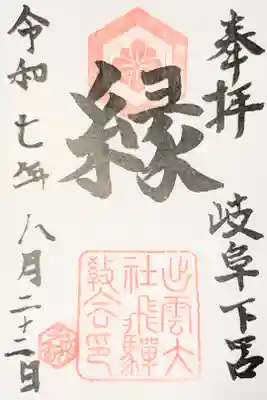 奉拝
岐阜下呂
縁
出雲大
社飛驒
教会印
令和七年八月二十二日